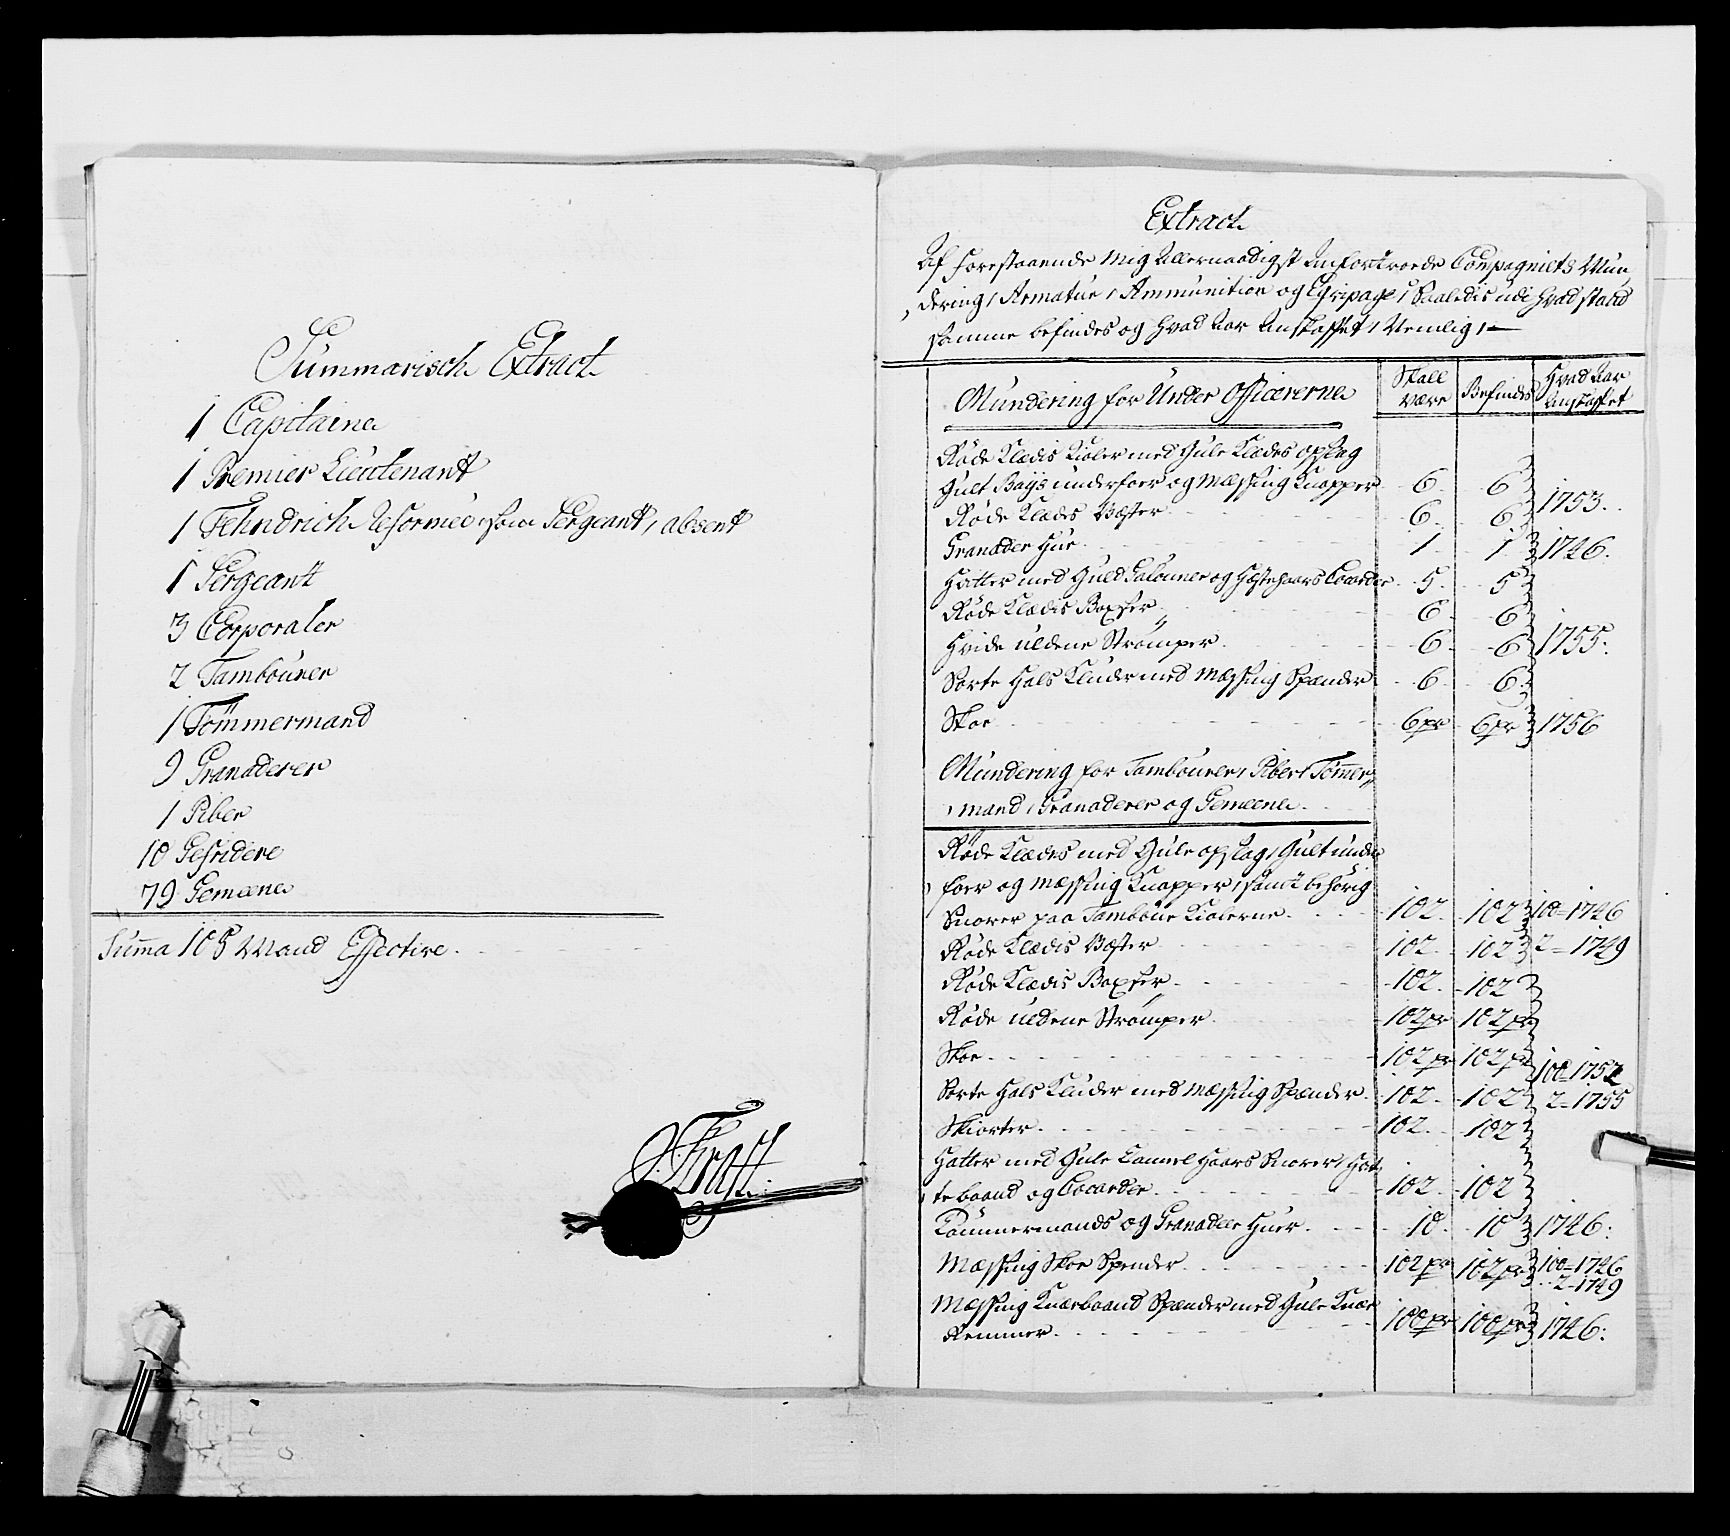 Summarisch Extract
1 Capitaine
1 Premier Lieutenant
1 Fehndrich Reformée som Sergeant, absent
1 Sergeant
3 Corporaler
2 Tambourer
1 Tömmermand
9 Granaderer
1 Piber
10 Gefridere
79 Gemeene
Summa 105 Mand Effective.
Kraft
Extract
Af Forestaaende Mig Allernaadigst Anfortroede Compagniets Mun-
dering, Armatur, Ammunition og Eqvipage, Saaledis udi Hvad stand
samme befindes og Hvad Aar Anskaffet, Nemlig,
Mundering for Under Officererne | Skall være | Befindes | Hvad Aar Anskaffet
Røde Klædis Kioler med Gule Klædes opslag
Gult Bays underfoer og Messing Knapper 6. 6
Røde Klædes Væster 6. 6. 1753.
Granadeer Hue 1. 1 1746.
Hatter med Guld Galouner og Hæstehaars Cocarder 5. 5
Røde Klædis Boxser 6. 6
Hvide uldene Strømper 6. 6 1755.
Sorte Hals Kluder med Messing Spænder 6. 6.
Skoe 6 pr 6 pr 1756
Mundering for Tambourer, Piber, Tömmer-
mand, Granaderer og Gemeene.
Røde Klædes med Gule opslag, Gult under
foer og Messing Knapper, samt behörig
Snorer paa Tambour Kiolerne. 102. 102 100=1746
Røde Klædis Væster 102. 102 2=1749
Røde Klædis Boxser 102. 102
Røde uldene Strømper 102 pr 102 pr
Skoe 102 pr 102 pr 100=1752
Sorte Hals Kluder med Messing Spænder 102. 102 2=1755
Skiorter 102. 102
Hatter med Gule Camel Haars Snorer, Hat-
tebaand og Cocarder 102. 102
Tömmermands og Granadeer Huer 10. 10 1746.
Messing Skoe Spender 102 pr 102 pr 100=1746
2=1749
Messing Knæebaand Spænder med Gule Knæe
Remmer 100 pr 100 pr 1746.